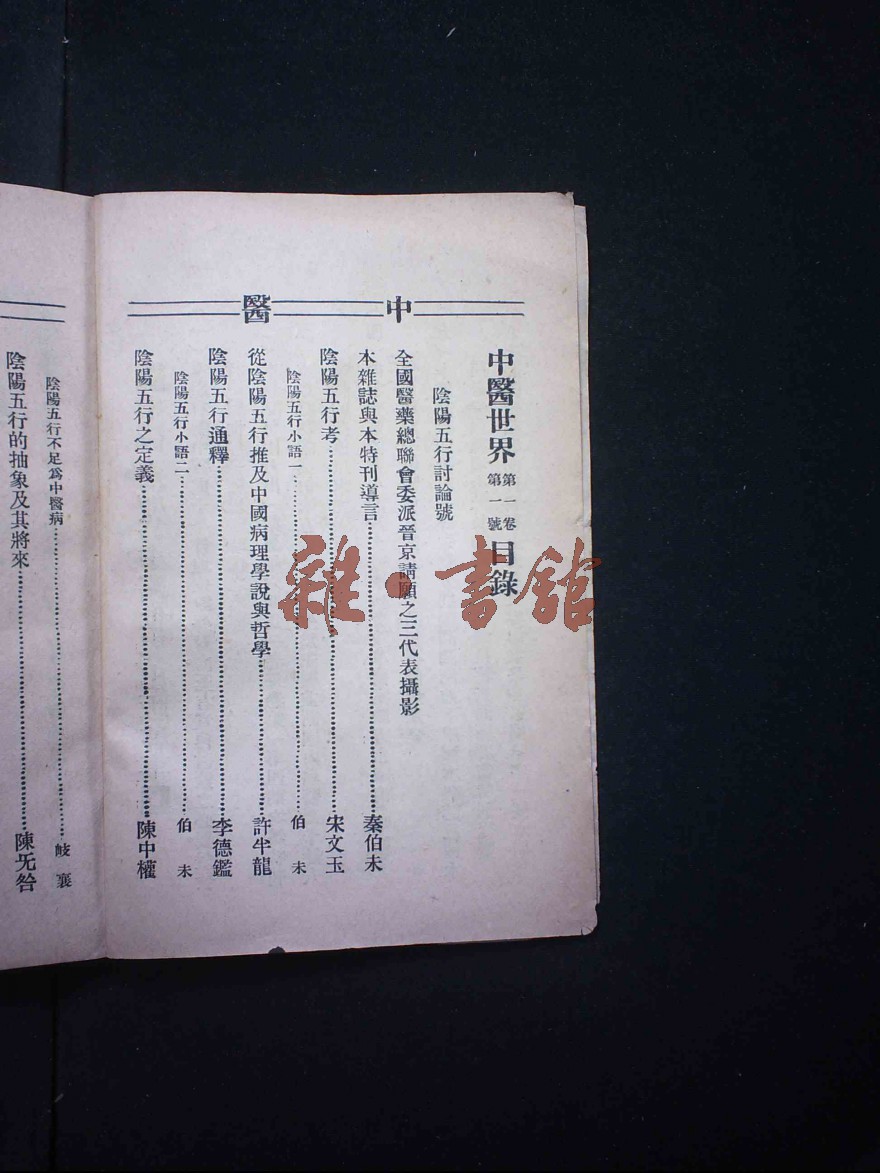 中醫
中醫世界 第一卷 第一號 目錄
陰陽五行討論號
全國醫藥總聯會委派晉京請願之三代表攝影
本雜誌與本特刊導言 秦伯未
陰陽五行考 宋文玉
陰陽五行小語一 伯未
從陰陽五行推及中國病理學說與哲學 許半龍
陰陽五行通釋 李德鑑
陰陽五行小語二 伯未
陰陽五行之定義 陳中權
陰陽五行不足為中醫病 岐襄
陰陽五行的抽象及其將來 陳旡咎
雜·書館